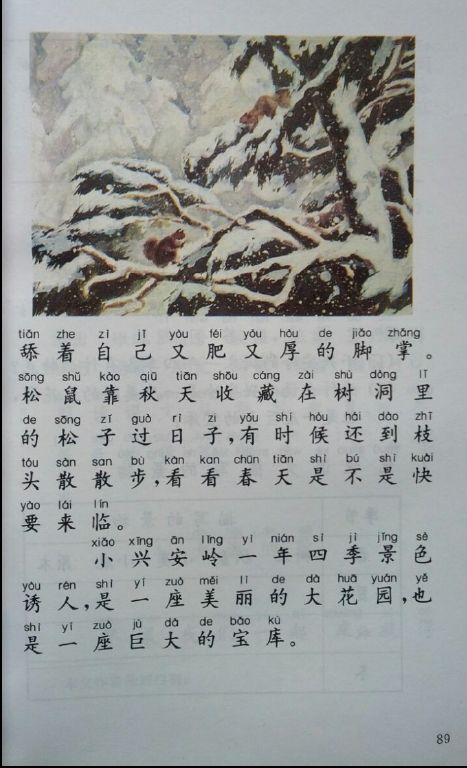 tiǎn zhe zì jǐ yòu féi yòu hòu de jiǎo zhǎng
舔着自己又肥又厚的脚掌。
sōng shǔ kào qiū tiān shōu cáng zài shù dòng lǐ
松鼠靠秋天收藏在树洞里
de sōng zǐ guò rì zi yǒu shí hòu hái dào zhī
的松子过日子,有时候还到枝
tóu sàn san bù kàn kan chūn tiān shì bú shì kuài
头散散步,看看春天是不是快
yào lái lín
要来临。
xiǎo xīng ān lǐng yì nián sì jì jǐng sè
小兴安岭一年四季景色
yòu rén shì yí zuò měi lì de dà huā yuán yě
诱人,是一座美丽的大花园,也
shì yí zuò jù dà de bǎo kù
是一座巨大的宝库。
89